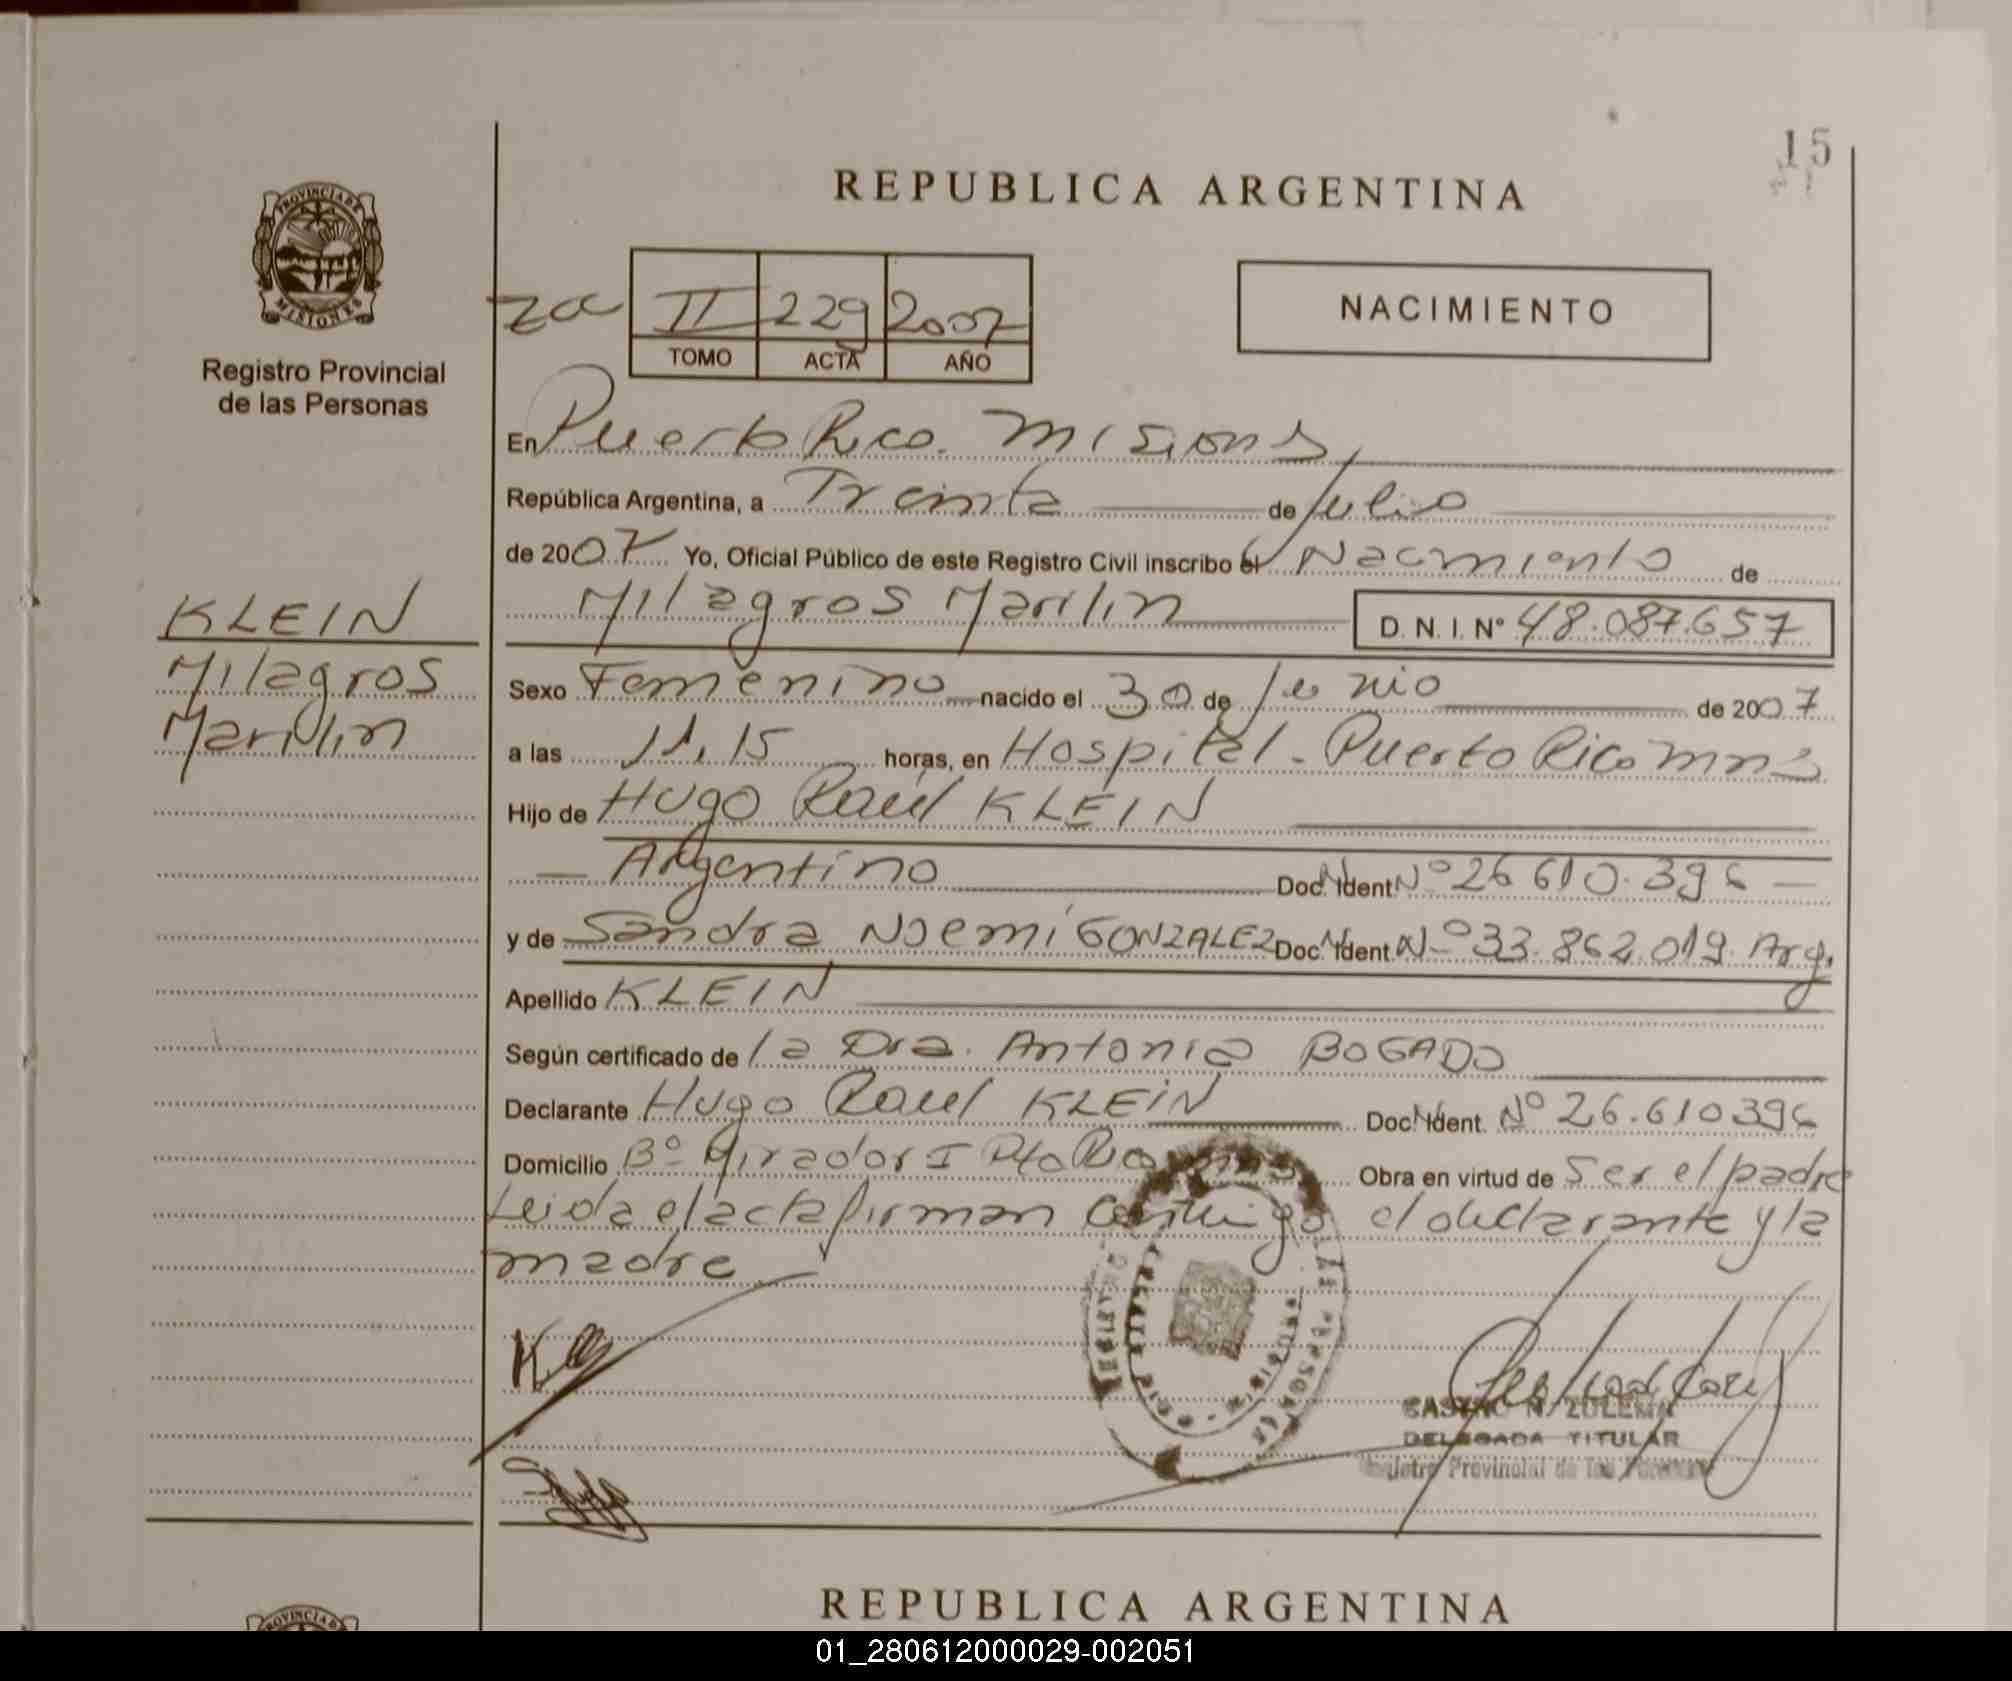 15
REPUBLICA ARGENTINA
PROVINCIA DE
MISIONES
Registro Provincial
de las Personas
II 229 2007
TOMO ACTA AÑO
NACIMIENTO
En Puerto Rico. Misions
República Argentina, a Treinta de Julio
de 2007 Yo, Oficial Público de este Registro Civil inscribo el Nacimiento de
Milagros Marilin D. N. I. Nº 48.087.657
KLEIN
Milagros
Marilin
Sexo Femenino nacido el 30 de Junio de 2007
a las 11,15 horas, en Hospital - Puerto Rico Mns
Hijo de Hugo Raúl KLEIN
Argentino Doc. Ident. Nº 26 610.396
y de Sandra Noemí GONZALEZ Doc. Ident. Nº 33.862.019. Arg.
Apellido KLEIN
Según certificado de la Dra. Antonia BOGADO
Declarante Hugo Raul KLEIN Doc. Ident. Nº 26.610396
Domicilio Bº Mirador I Pto Rico Obra en virtud de Ser el padre
Leida el acta firman conmigo el declarante y la
madre
CASTRO N. ZULEMA
DELEGADA TITULAR
Registro Provincial de las Personas
REPUBLICA ARGENTINA
PROVINCIA DE
01_280612000029-002051